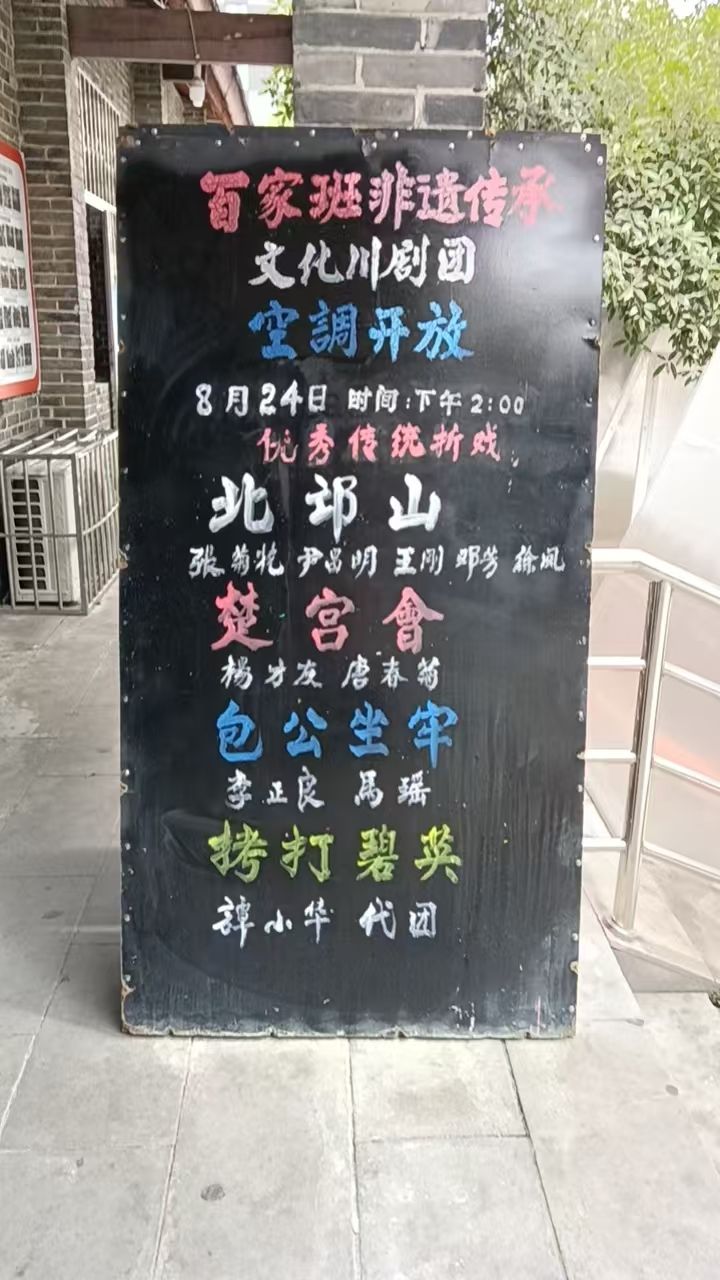 百家班非遗传承
文化川剧团
空調开放
8月24日 时间:下午2:00
优秀传统折戏
北邙山
张菊花 尹昌明 王刚 邓芳 徐凤
楚宫會
楊才友 唐春菊
包公坐牢
李正良 馬瑶
拷打碧英
譚小华 代团